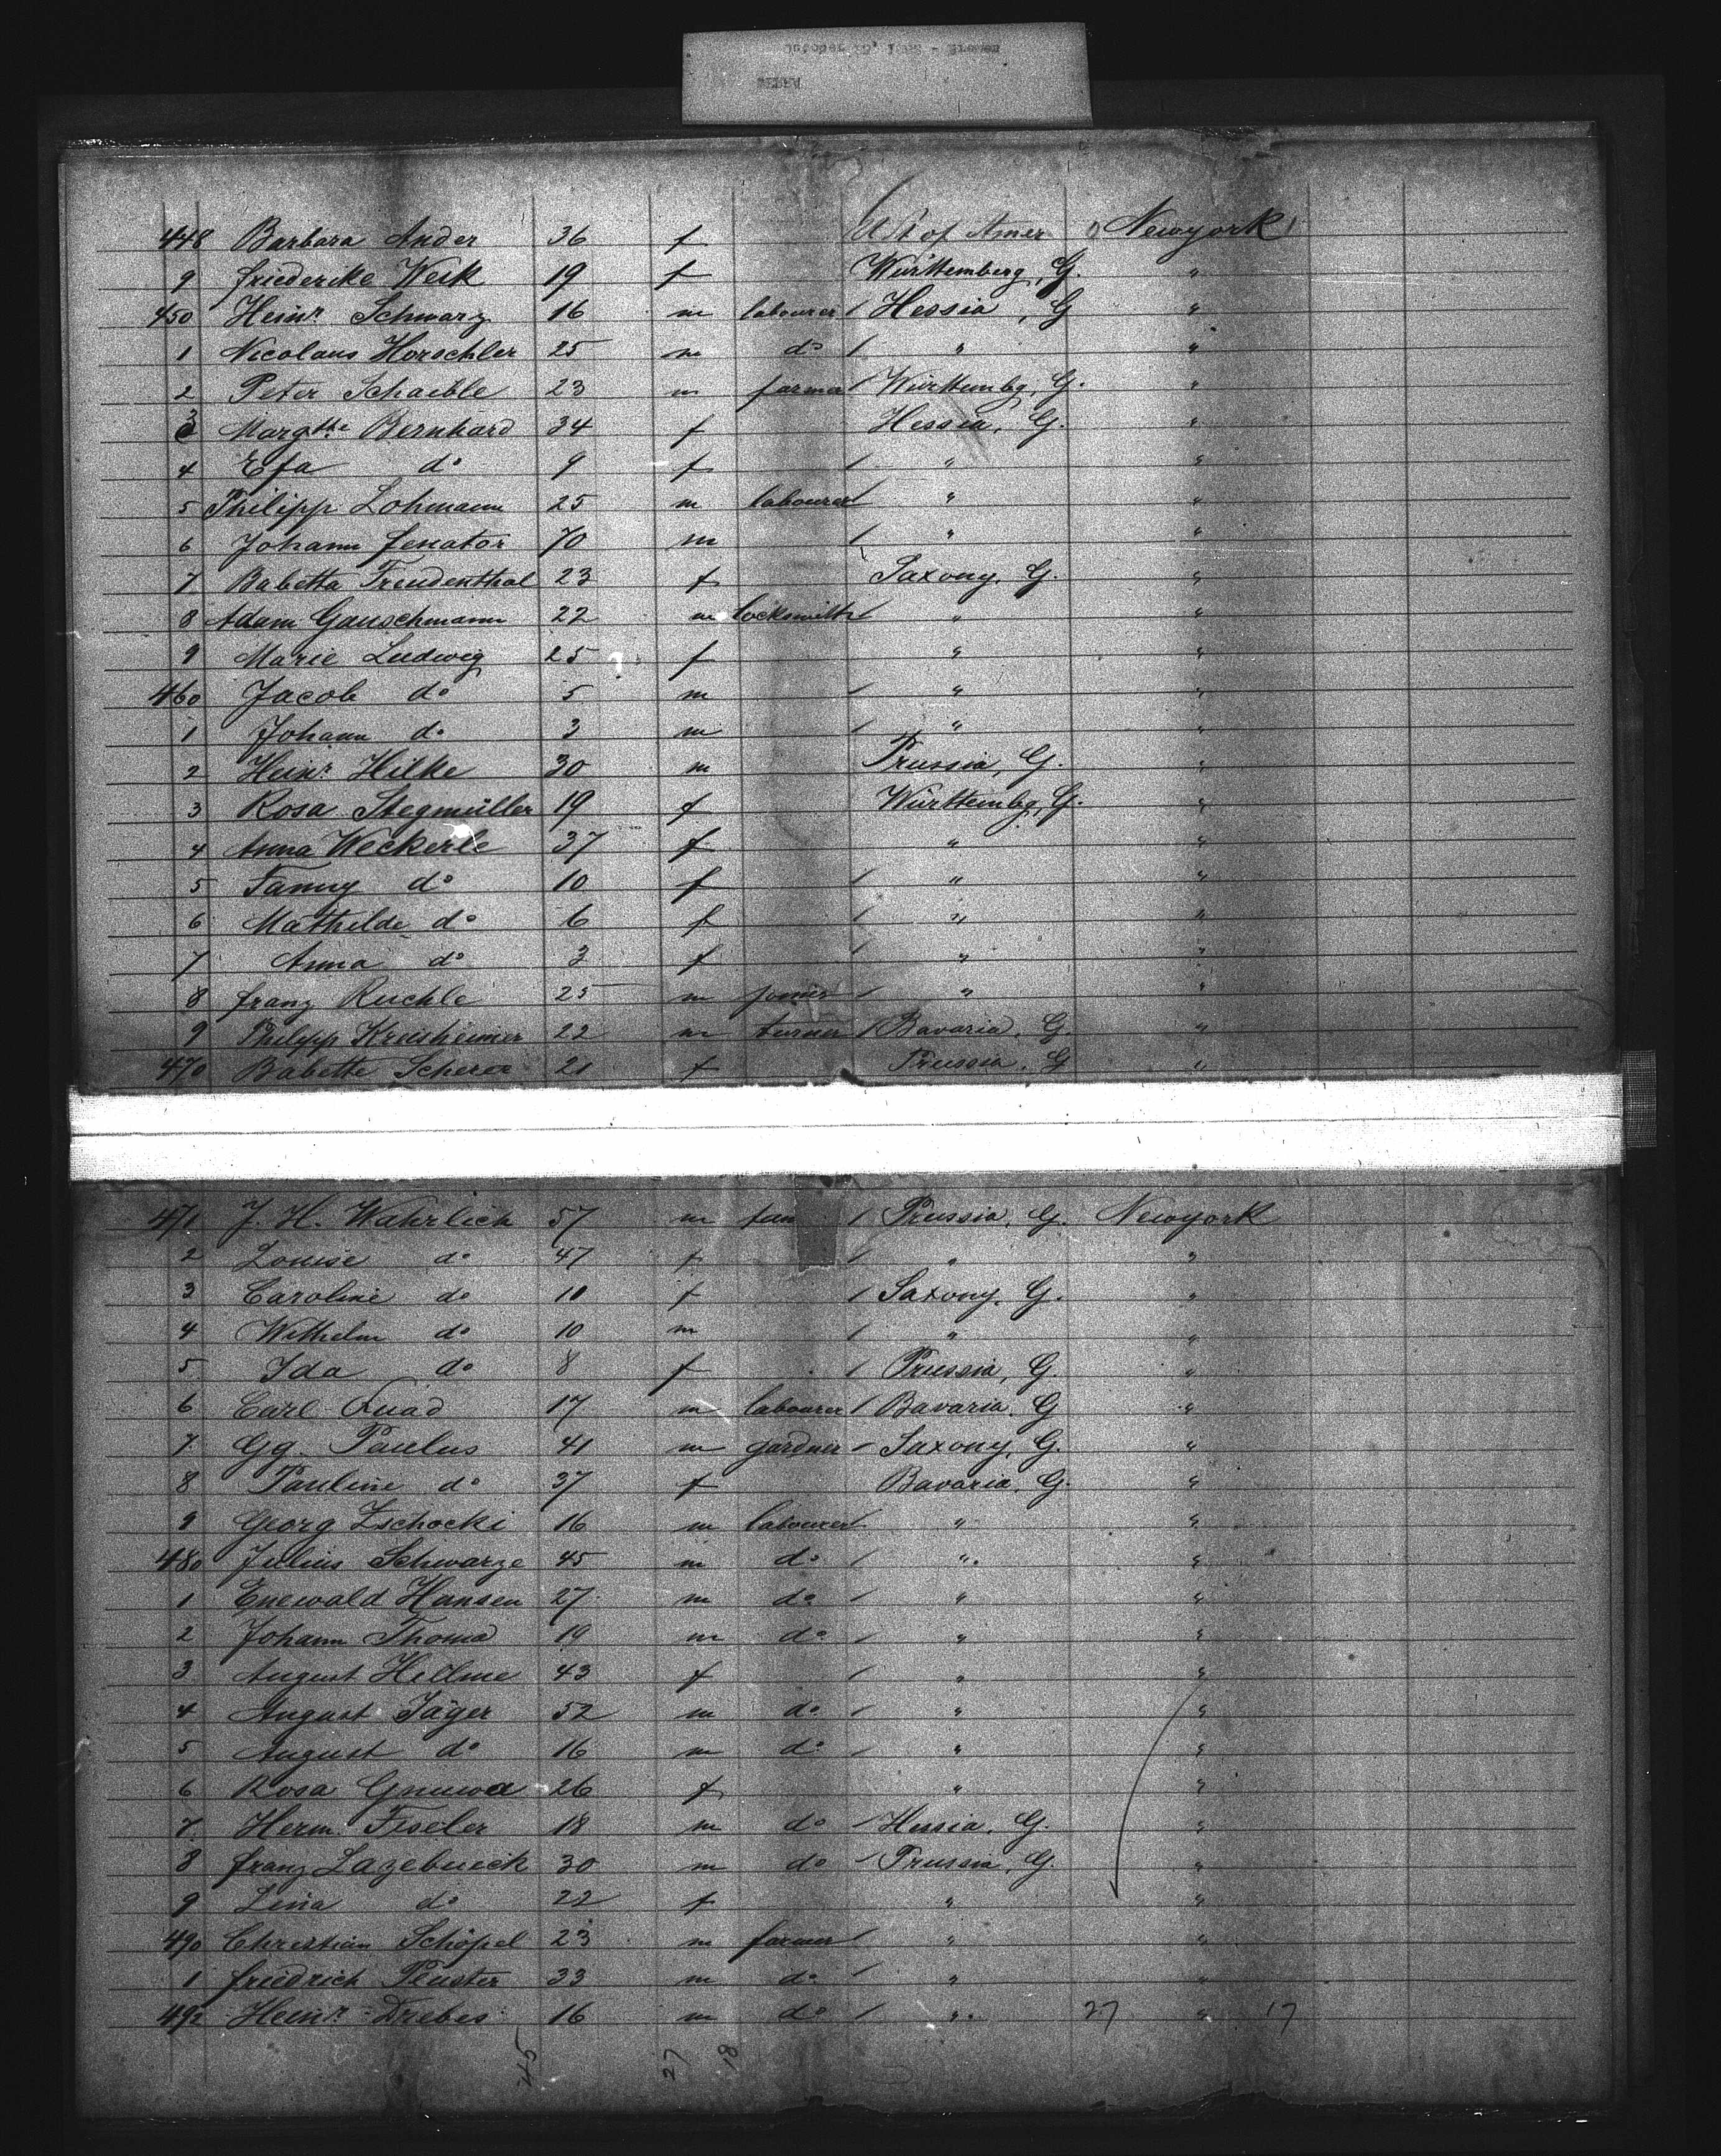 448 Barbara Ander 36 f U S of Amer Newyork
9 Friederike Weik 19 f Württemberg, G. "
450 Heinr. Schwarz 16 m labourer / Hessia, G "
1 Nicolaus Horschler 25 m do / " "
2 Peter Schaible 23 m farmer / Württembg, G. "
3 Margthe Bernhard 34 f Hessia, G. "
4 Efa do 9 f / " "
5 Philipp Lohmann 25 m labourer / " "
6 Johann Senator 70 m / " "
7 Babetta Freudenthal 23 f Saxony, G. "
8 Adam Gauschmann 22 m locksmith / " "
9 Marie Ludwig 25 f " "
460 Jacob do 5 m / " "
1 Johann do 3 m / " "
2 Heinr. Hilke 30 m Prussia, G. "
3 Rosa Stegmüller 19 f Württembg, G. "
4 Anna Weckerle 37 f " "
5 Fanny do 10 f / " "
6 Mathilde do 6 f / " "
7 Anna do 3 f / " "
8 Franz Ruchle 25 m joiner / " "
9 Philipp Kreisheimer 22 m turner / Bavaria, G. "
470 Babette Scherer 21 f Prussia, G "
471 J. H. Wahrlich 57 m / Prussia, G. Newyork
2 Louise do 47 f / " "
3 Caroline do 10 f / Saxony, G. "
4 Wilhelm do 10 m / " "
5 Ida do 8 f / Prussia, G. "
6 Carl Quad 17 m labourer / Bavaria, G "
7 Gg. Paulus 41 m gardner / Saxony, G. "
8 Pauline do 37 f Bavaria, G. "
9 Georg Zschocki 16 m labourer / " "
480 Julius Schwarze 45 m do / " "
1 Enewald Hansen 27 m do / " "
2 Johann Thoma 19 m do / " "
3 August Hellme 43 f / " "
4 August Jäger 52 m do / " "
5 August do 16 m do / " "
6 Rosa 26 f " "
7 Herm. Fiseler 18 m do / Hessia, G. "
8 Franz Lazebnick 30 m do / Prussia, G. "
9 Lina do 22 f " "
490 Christian Schöpel 23 m farmer / " "
1 Friedrich Peuster 33 m do / " "
492 Heinr. Drebes 16 m do / " 27 " 17
45 27 18